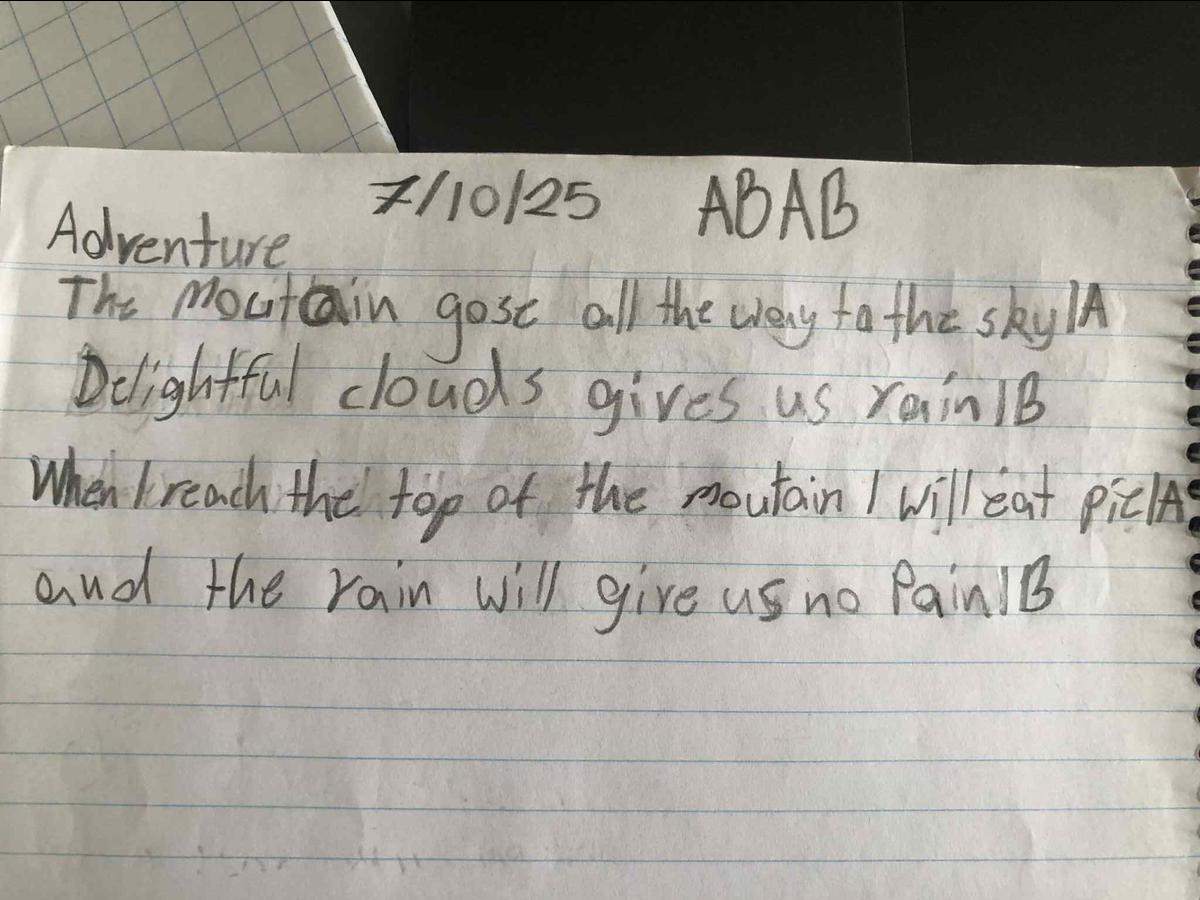 7/10/25 ABAB
Adventure
The Moutain gose all the way to the sky/A
Delightful clouds gives us rain/B
When I reach the top of the moutain I will eat pie/A
and the rain will give us no Pain/B